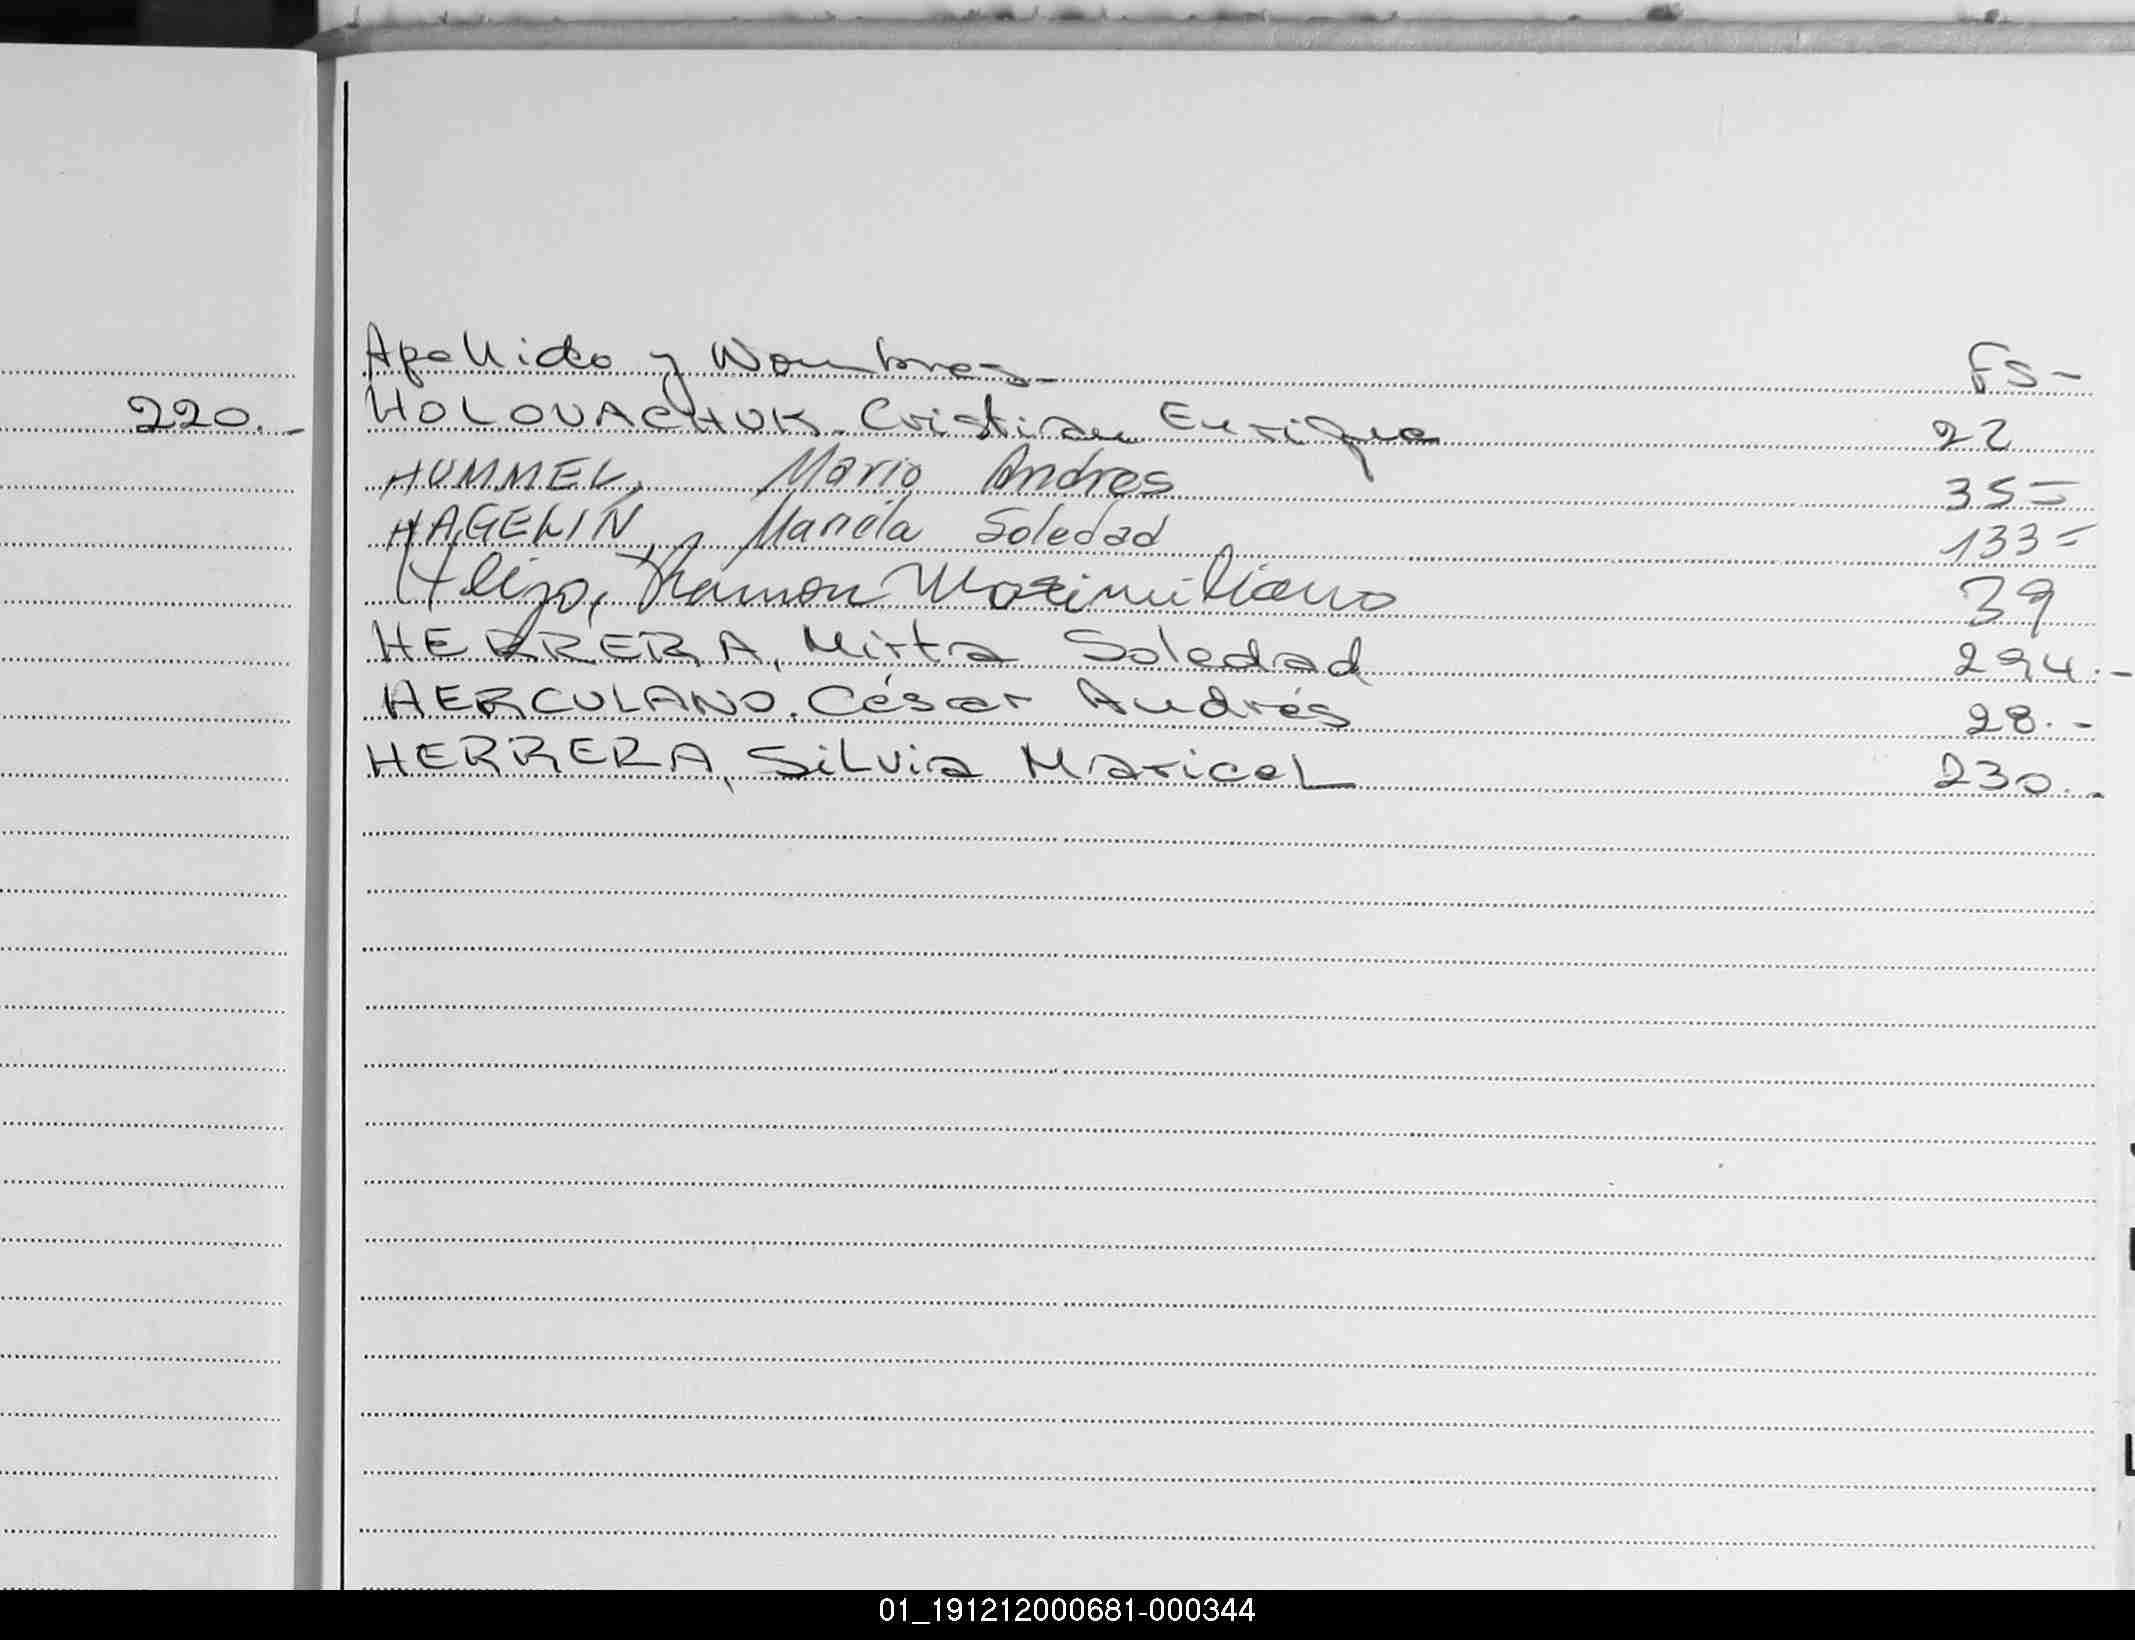 220.-
Apellido y Nombres- Fs-
HOLOVACHUK. Cristian Enrique 22
HUMMEL, Mario Andres 35=
HAGELIN, Mariela Soledad 133=
Ramon Maximiliano 39
HERRERA, Mirta Soledad 294.-
HERCULANO. César Andrés 28.-
HERRERA, Silvia Maricel 230.-
01_191212000681-000344